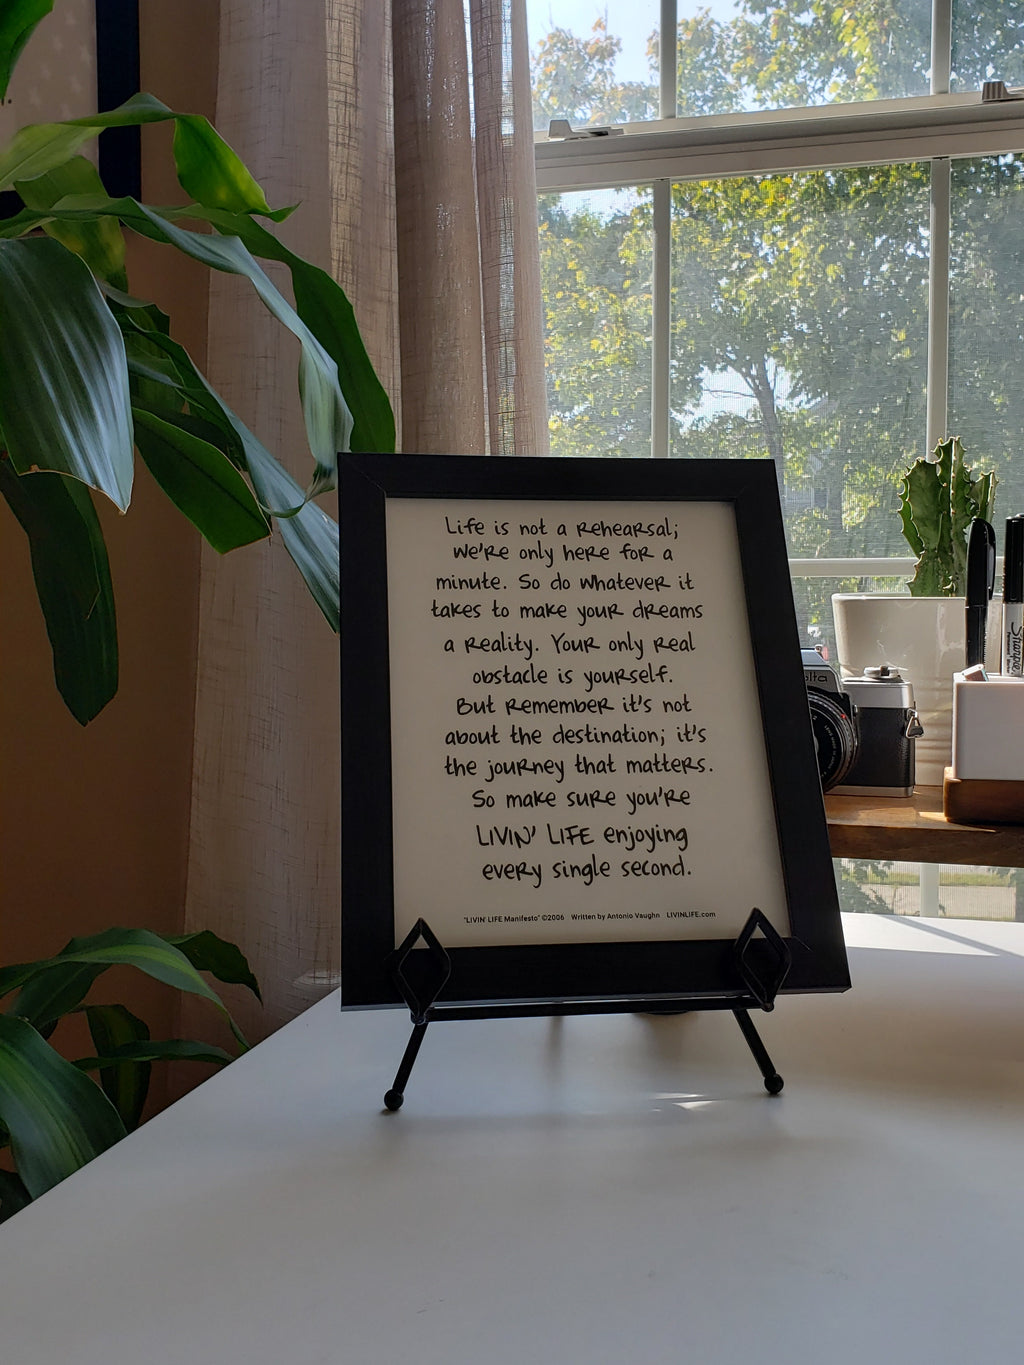 Life is not a rehearsal;
we're only here for a
minute. So do whatever it
takes to make your dreams
a reality. Your only real
obstacle is yourself.
But remember it's not
about the destination; it's
the journey that matters.
So make sure you're
LIVIN' LIFE enjoying
every single second.
"LIVIN' LIFE Manifesto" ©2006 Written by Antonio Vaughn LIVINLIFE.com
olta
Sharpie